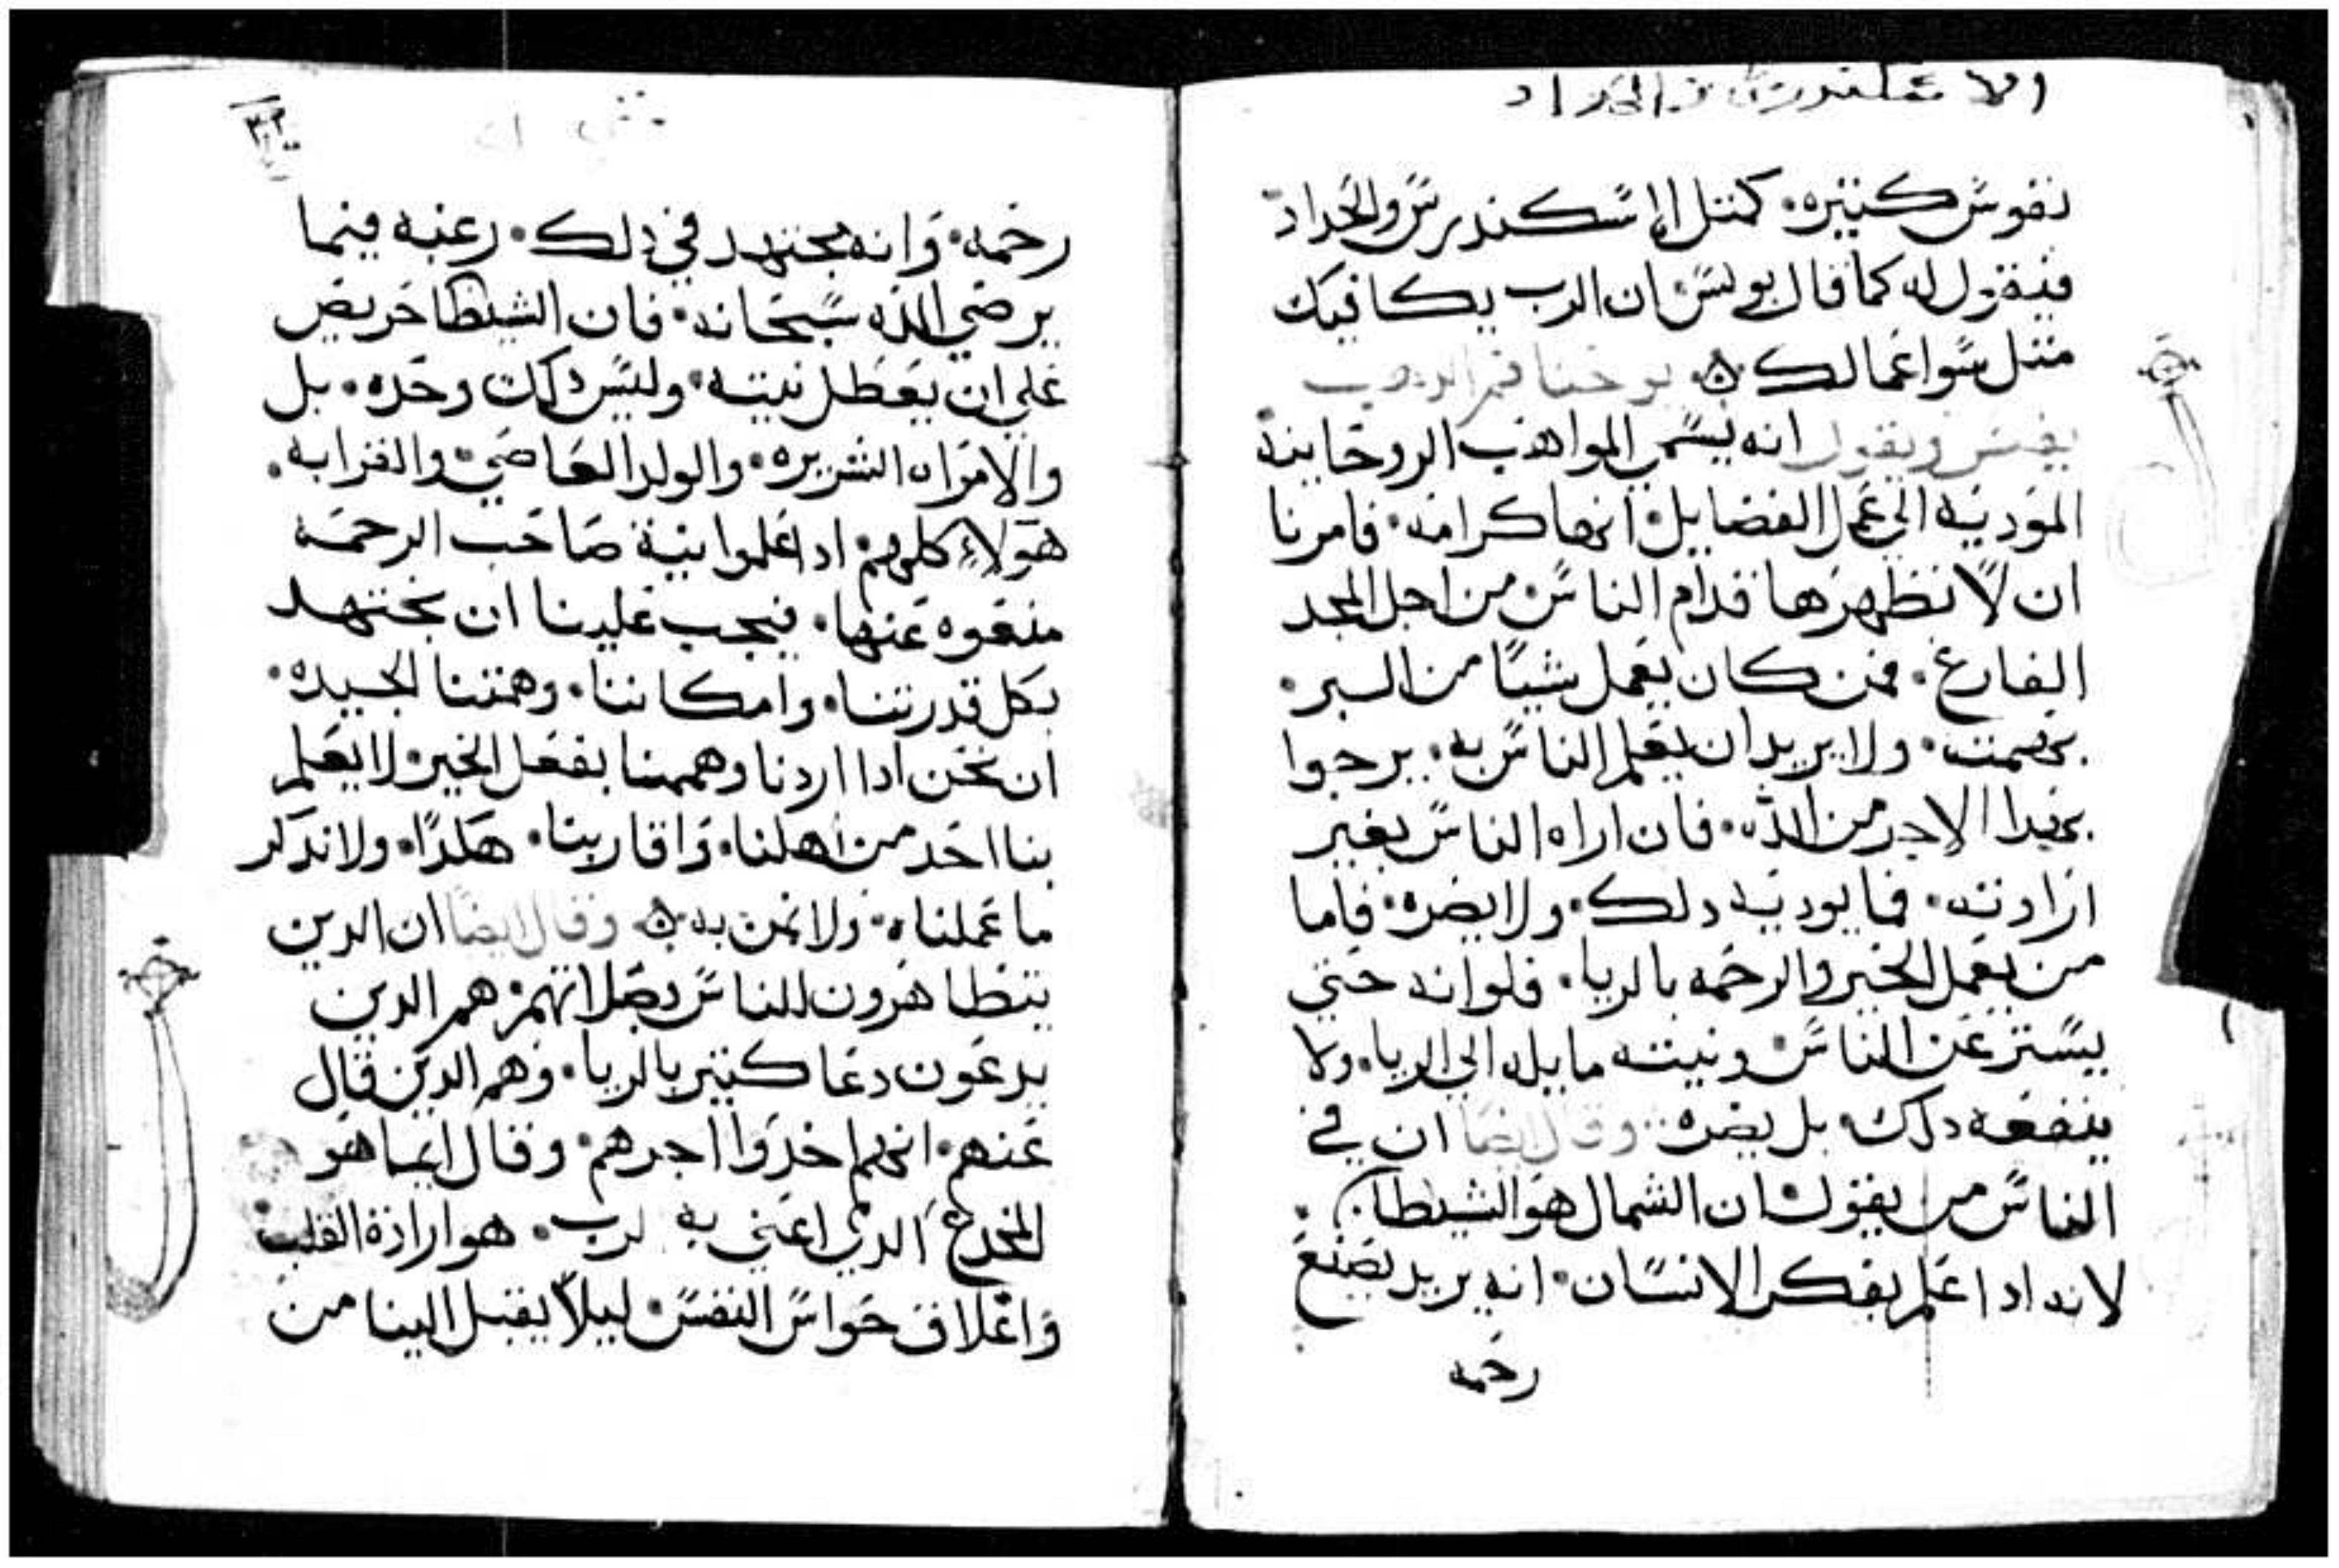 نفوس كتيره. كمتل الاسكندرس والحداد
فيقول له كما قال بولس ان الرب يكافيك
متل سوا عمالك يوحنا فم الدهب
يفسر ويقول انه يسمي المواهب الروحانية
الموديه الي عمل الفضايل انها كرامه. فامرنا
ان لا نظهرها قدام الناس من اجل المجد
الفارغ. فمن كان يعمل شيا من البر.
بصمت. ولا يريد ان يعلم الناس به. يرجوا
بهدا الاجر من الله. فان اراه الناس بغير
ارادته. فما يوديه دلك. ولا يضره. فاما
من يعمل الخير والرحمه بالريا. فلو انه حتي
يستتر عن الناس ونيته مايله الي الريا. ولا
ينفعه دلك بل يضره وقال ايضا ان في
الناس من يقول ان الشمال هو الشيطان.
لانه ادا علم بفكر الانسان. انه يريد يصنع
رحمه
٣٠٢
رحمه. وانه يجتهد في دلك. رغبه فيما
يرضي الله سبحانه. فان الشيطا حريص
علي ان يعطل نيته. وليس دلك وحده. بل
والامراه الشريره. والولد العاصي. والقرابه.
هولاء كلهم ادا علموا بنية صاحب الرحمه
منعوه عنها. فيجب علينا ان نجتهد
بكل قدرتنا. وامكاننا. وهمتنا الجيده.
ان نحن ادا اردنا وهممنا بفعل الخير لا يعلم
بنا احد من اهلنا. واقاربنا. هكدا. ولا ندكر
ما عملناه. ولا نمن به وقال ايضا ان الدين
يتظاهرون للناس بصلاتهم هم الدين
يدعون دعا كتير بالريا. وهم الدين قال
عنهم. انهم اخدوا اجرهم. وقال ايما هو
المخدع الدي اعني به الرب. هو ارادة القلب
واغلاق حواس النفس ليلا يقبل الينا من